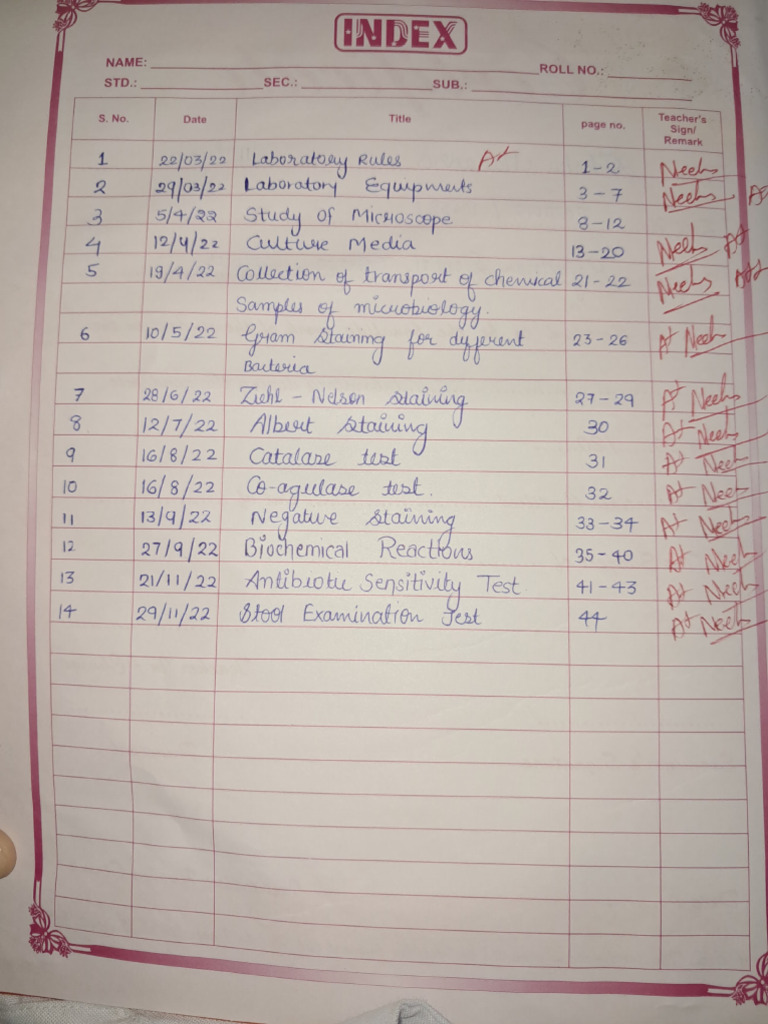 INDEX
NAME: ROLL NO.:
STD.: SEC.: SUB.:
S. No. Date Title page no. Teacher's Sign/ Remark
1 22/03/22 Laboratory Rules A+ 1-2
2 29/03/22 Laboratory Equipments 3-7
3 5/4/22 Study of Microscope 8-12
4 12/4/22 Culture Media 13-20 A+
5 19/4/22 Collection of transport of chemical 21-22
Samples of microbiology.
6 10/5/22 Gram Staining for different 23-26 A+
Bacteria
7 28/6/22 Ziehl - Nelson staining 27-29 A+
8 12/7/22 Albert staining 30 A+
9 16/8/22 Catalase test 31 A+
10 16/8/22 Co-agulase test. 32 A+
11 13/9/22 Negative staining 33-34 A+
12 27/9/22 Biochemical Reactions 35-40 A+
13 21/11/22 Antibiotic Sensitivity Test 41-43 A+
14 29/11/22 Stool Examination Test 44 A+